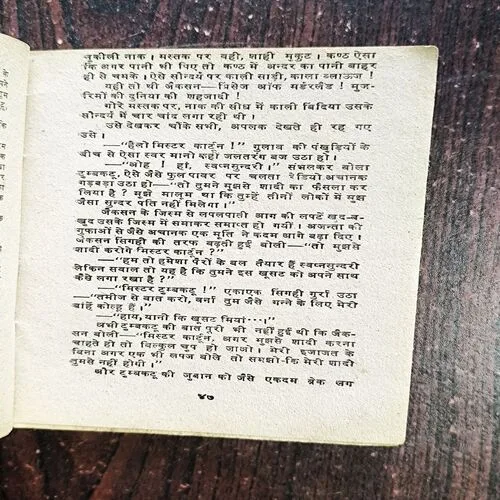 नुकीली नाक। मस्तक पर वही, शाही मुकुट। कण्ठ ऐसा
कि अगर पानी भी पिए तो कण्ठ में अन्दर का पानी बाहर
ही से चमके। ऐसे सौन्दर्य पर काली साड़ी, काला ब्लाऊज !
यही तो थी जैक्सन—प्रिंसेज ऑफ मर्डरलैंड ! मुज-
रिमों की दुनिया की शहजादी !
गोरे मस्तक पर, नाक की सीध में काली बिंदिया उसके
सौन्दर्य में चार चांद लगा रही थी।
उसे देखकर चौंके सभी, अपलक देखते ही रह गए
उसे।
—"हैलो मिस्टर कार्टून !" गुलाब की पंखुड़ियों के
बीच से ऐसा स्वर मानो कहीं जलतरंग बज उठा हो।
—"ओह ! हां, स्वप्नसुन्दरी।" संभलकर बोला
टुम्बकटू, ऐसे जैसे फुल पावर पर चलता रेडियो अचानक
गड़बड़ा उठा हो—"तो तुमने मुझसे शादी का फैसला कर
लिया है ? मुझे मालूम था कि तुम्हें तीनों लोकों में मुझ
जैसा सुन्दर पति नहीं मिलेगा।"
जैक्सन के जिस्म से लपलपाती आग की लपटें खद-ब-
खुद उसके जिस्म में समाकर समाप्त हो गयीं। अजन्ता की
गुफाओं से जैसे अचानक एक मूर्ति ने कदम आगे बढ़ा दिए।
जैकसन सिंगही की तरफ बढ़ती हुई बोली—"तो मुझसे
शादी करोगे मिस्टर कार्टून ?"
—"हम तो हमेशा पैरों के बल तैयार हैं स्वप्नसुन्दरी
लेकिन सवाल तो यह है कि तुमने इस खूसट को अपने साथ
कैसे लगा रखा है ?"
—"मिस्टर टुम्बकटू !" एकाएक सिंगही गुर्रा उठा
—"तमीज से बात करो, वर्ना तुम जैसे गन्ने के लिए मेरी
बाहें कोल्हू हैं।"
—"हाय, यानी कि खूसट मियां···।"
अभी टुम्बकटू की बात पूरी भी नहीं हुई थी कि जैक-
सन बोली—"मिस्टर कार्टून, अगर मुझसे शादी करना
चाहते हो तो बिल्कुल चुप हो जाओ। मेरी इजाजत के
बिना अगर एक भी लफ्ज बोले तो समझो-कि मेरी शादी
तुमसे नहीं होगी।"
और टुम्बकटू की जुबान को जैसे एकदम ब्रेक लग
४७